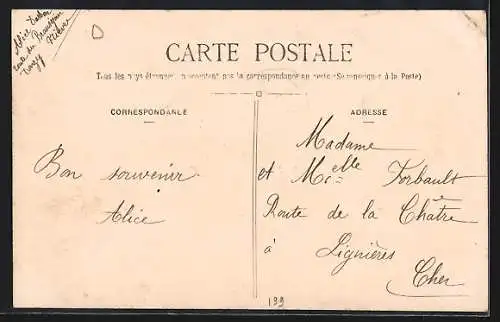 Alice
CARTE POSTALE
Tous les pays étrangers n'acceptent pas la correspondance au recto (Se renseigner à la Poste)
CORRESPONDANCE
Bon souvenir
Alice
ADRESSE
Madame
et Melle Forbault
Route de la Châtre
à Lignières
Cher
199